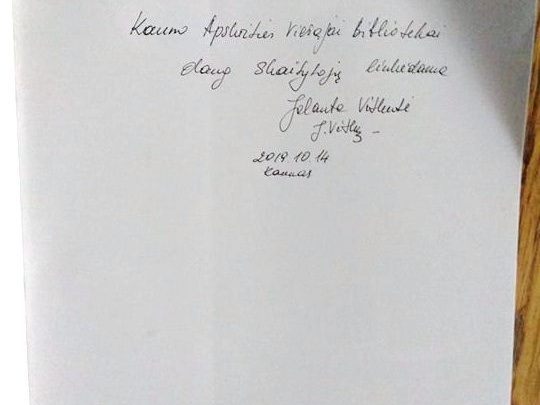 Kauno Apskrities Viešajai bibliotekai
daug skaitytojų linkėdama
Jolanta Vitkutė
J. Vitk
2019.10.14
Kaunas